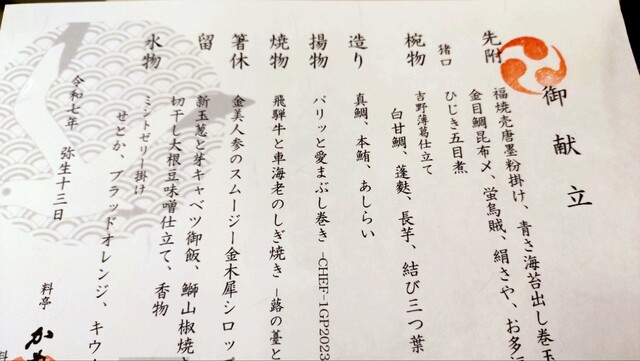 御献立
先附
福焼売唐墨粉掛け、青さ海苔出し巻玉
金目鯛昆布〆、蛍烏賊、絹さや、お多
猪口
ひじき五目煮
椀物
吉野薄葛仕立て
白甘鯛、蓬麩、長芋、結び三つ葉
造り
真鯛、本鮪、あしらい
揚物
パリッと愛まぶし巻き –CHEF-1GP2023
焼物
飛騨牛と車海老のしぎ焼き –蕗の薹と
箸休
金美人参のスムージー金木犀シロッ
留
新玉葱と芽キャベツ御飯、鰤山椒焼
切干し大根豆味噌仕立て、香物
水物
ミントゼリー掛け
せとか、ブラッドオレンジ、キウ
令和七年 弥生十三日
料亭 か